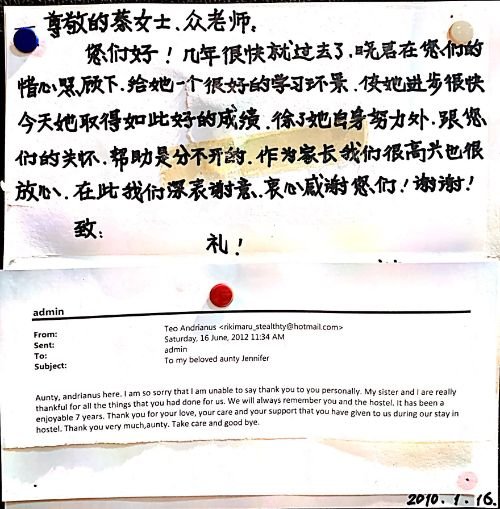 尊敬的蔡女士、众老师。
您们好！几年很快就过去了，晓君在您们的
惜心照顾下，给她一个很好的学习环景，使她进步很快
今天她取得如此好的成绩，徐了她自身努力外，跟您
们的关怀、帮助是分不开的，作为家长我们很高兴也很
放心，在此我们深表谢意、衷心感谢您们！谢谢！
致：
礼！
admin
From: Teo Andrianus <rikimaru_stealthty@hotmail.com>
Sent: Saturday, 16 June, 2012 11:34 AM
To: admin
Subject: To my beloved aunty Jennifer
Aunty, andrianus here. I am so sorry that I am unable to say thank you to you personally. My sister and i are really
thankful for all the things that you had done for us. We will always remember you and the hostel. It has been a
enjoyable 7 years. Thank you for your love, your care and your support that you have given to us during our stay in
hostel. Thank you very much,aunty. Take care and good bye.
2010.1.16.